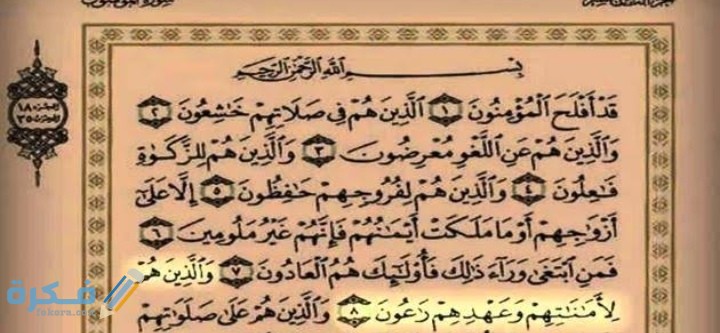 بِسْمِ اللَّهِ الرَّحْمَٰنِ الرَّحِيمِ
قَدْ أَفْلَحَ الْمُؤْمِنُونَ ١ الَّذِينَ هُمْ فِي صَلَاتِهِمْ خَاشِعُونَ ٢
وَالَّذِينَ هُمْ عَنِ اللَّغْوِ مُعْرِضُونَ ٣ وَالَّذِينَ هُمْ لِلزَّكَوٰةِ
فَاعِلُونَ ٤ وَالَّذِينَ هُمْ لِفُرُوجِهِمْ حَافِظُونَ ٥ إِلَّا عَلَىٰ
أَزْوَاجِهِمْ أَوْ مَا مَلَكَتْ أَيْمَانُهُمْ فَإِنَّهُمْ غَيْرُ مَلُومِينَ ٦
فَمَنِ ابْتَغَىٰ وَرَاءَ ذَٰلِكَ فَأُولَٰئِكَ هُمُ الْعَادُونَ ٧ وَالَّذِينَ هُمْ
لِأَمَانَاتِهِمْ وَعَهْدِهِمْ رَاعُونَ ٨ وَالَّذِينَ هُمْ عَلَىٰ صَلَوَاتِهِمْ
الجزء ١٨
الحزب ٣٥
فكرة
fekera.com